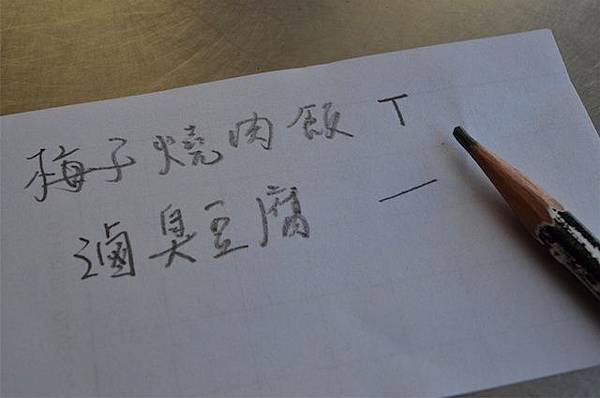 梅子燒肉飯 T
滷臭豆腐 一